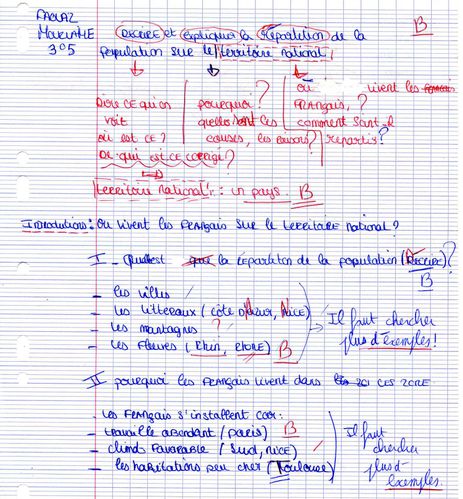 B
MOUENAHE
3°5
DECRIRE et expliquer la répartition de la
population sur le territoire national.
DiRE CE qu'on
voit
où est CE?
De qui est CE corrigé?
pourquoi?
quelles sont les
causes, les raisons?
où vivent les
FRANçais,?
comment sont-il
repartis?
territoire national: un pays. B
Introductions: où vivent les FRANçais sur le territoire national?
I - Quelle est la répartiton de la population (DECRIRE)?
B
- les villes
- les litteraux (côte d'Azur, NicE)
- les montagnes ?
- les Fleuves (Rhin, RHONE) B
Il faut chercher
plus d'exemples!
II pourquoi les FRANçais vivent dans CES ZONE
- les FRANçais s'installent car:
- travaille abondant (paris) B
- climat FAVORABLE (Sud, NICE)
- les habitations peu cher (Toulouse)
Il faut
chercher
plus d'-
exemples.